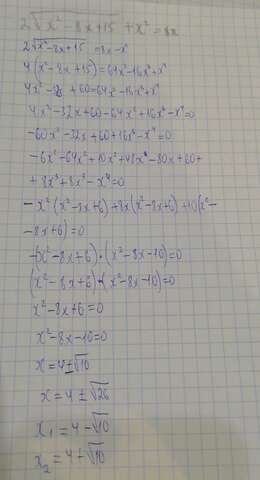 2√x²-8x+15 + x² = 8x
2√x²-8x+15 = 8x-x²
4(x²-8x+15)=64x²-16x³+x⁴
4x²- +60=64x²-16x³+x⁴
4x²-32x+60-64x²+16x³-x⁴=0
-60x²-32x+60+16x³-x⁴=0
-6x²-64x²+10x²+48x-80x+60+
+8x³+8x³-x⁴=0
-x²(x²-8x+6)+8x(x²-8x+6)+10(x²-
-8x+6)=0
-(x²-8x+6)·(x²-8x-10)=0
(x²-8x+6)·(x²-8x-10)=0
x²-8x+6=0
x²-8x-10=0
x=4±√10
x=4±√26
x₁=4-√10
x₂=4+√10